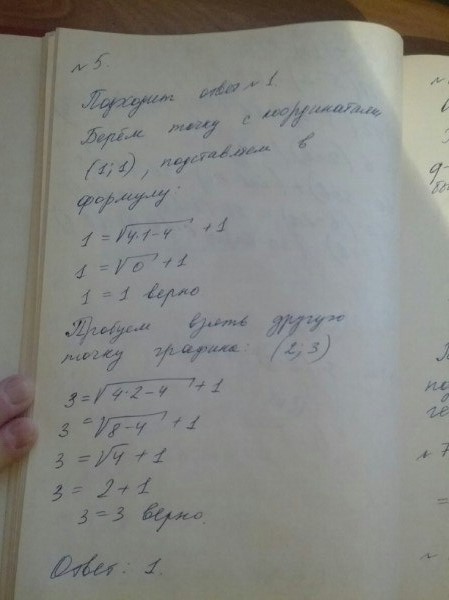 № 5.
Подходит ответ № 1.
Берём точку с координатами
(1;1), подставляем в
формулу:
1 = √4·1-4 +1
1 = √0 +1
1 = 1 верно
Пробуем взять другую
точку графика: (2;3)
3 = √4·2-4 +1
3 = √8-4 +1
3 = √4 +1
3 = 2+1
3=3 верно.
Ответ: 1.